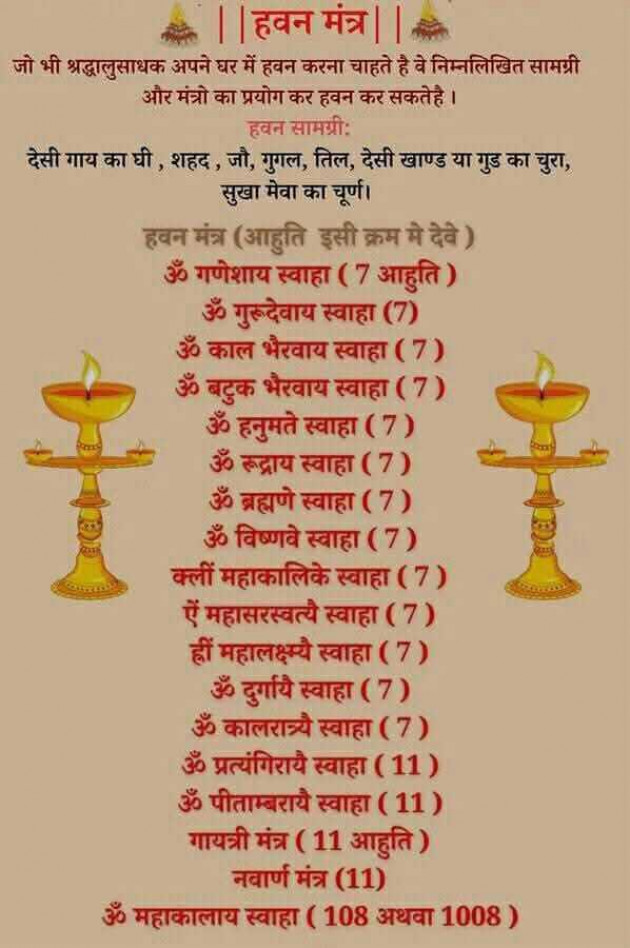 ||हवन मंत्र||
जो भी श्रद्धालुसाधक अपने घर में हवन करना चाहते है वे निम्नलिखित सामग्री
और मंत्रो का प्रयोग कर हवन कर सकतेहै ।
हवन सामग्री:
देसी गाय का घी , शहद , जौ, गुगल, तिल, देसी खाण्ड या गुड का चुरा,
सुखा मेवा का चूर्ण।
हवन मंत्र (आहुति इसी क्रम मे देवे )
ॐ गणेशाय स्वाहा ( 7 आहुति )
ॐ गुरूदेवाय स्वाहा (7)
ॐ काल भैरवाय स्वाहा ( 7 )
ॐ बटुक भैरवाय स्वाहा ( 7 )
ॐ हनुमते स्वाहा ( 7 )
ॐ रूद्राय स्वाहा ( 7 )
ॐ ब्रह्मणे स्वाहा ( 7 )
ॐ विष्णवे स्वाहा ( 7 )
क्लीं महाकालिके स्वाहा ( 7 )
ऐं महासरस्वत्यै स्वाहा ( 7 )
ह्रीं महालक्ष्म्यै स्वाहा ( 7 )
ॐ दुर्गायै स्वाहा ( 7 )
ॐ कालरात्र्यै स्वाहा ( 7 )
ॐ प्रत्यंगिरायै स्वाहा ( 11 )
ॐ पीताम्बरायै स्वाहा ( 11 )
गायत्री मंत्र ( 11 आहुति )
नवार्ण मंत्र (11)
ॐ महाकालाय स्वाहा ( 108 अथवा 1008 )